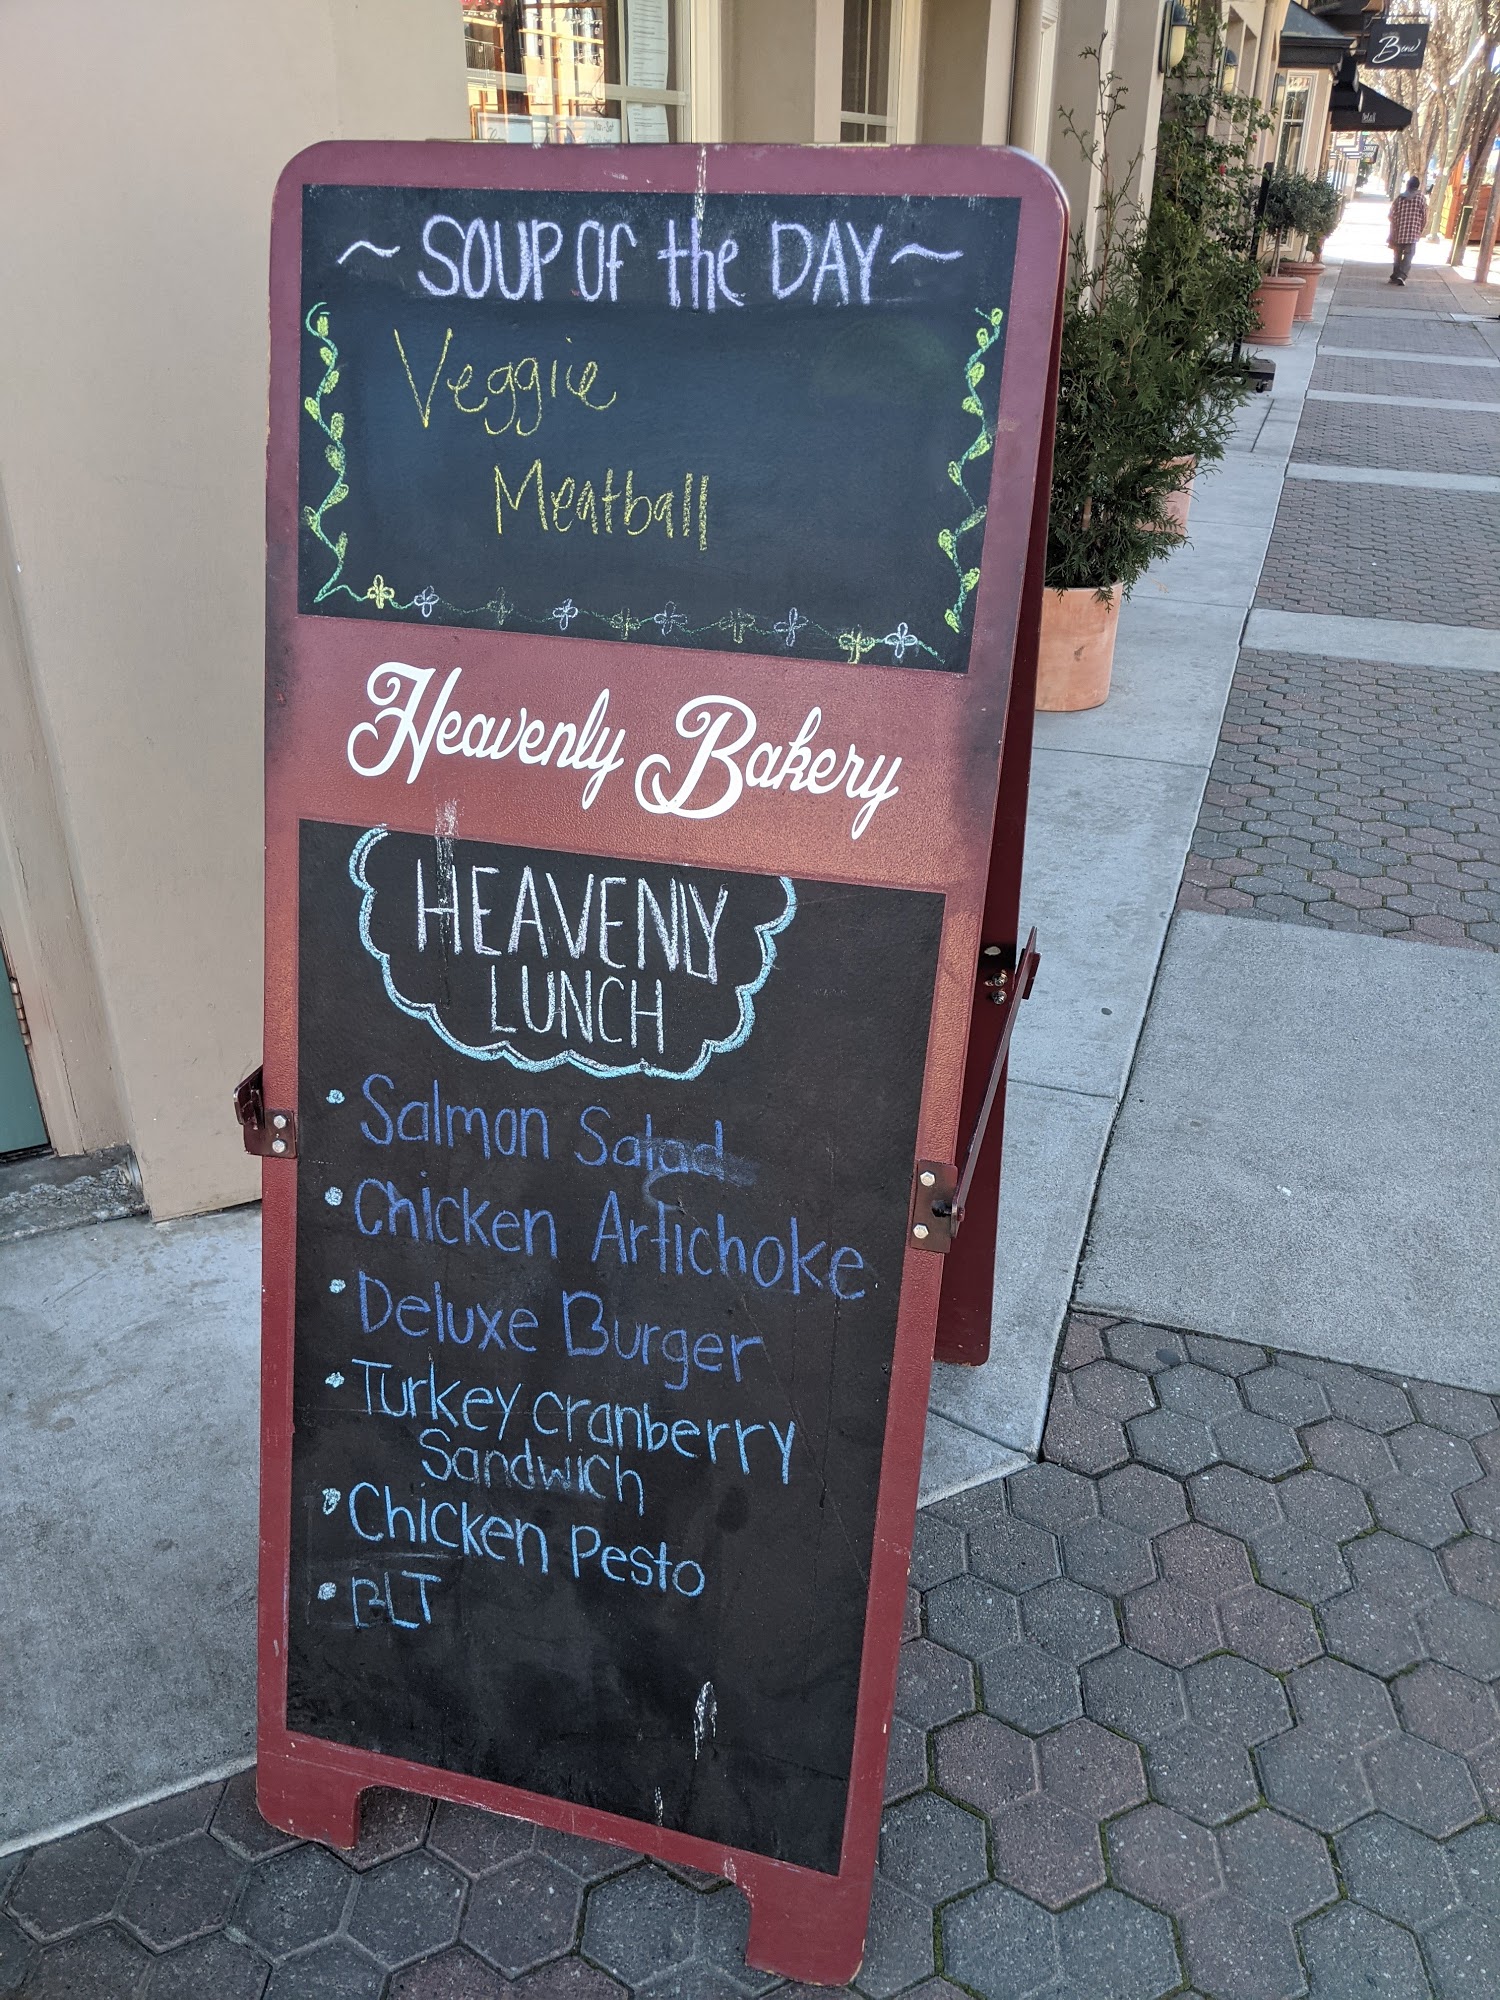 ~ SOUP OF the DAY ~
Veggie
Meatball
Heavenly Bakery
HEAVENLY
LUNCH
• Salmon Salad
• Chicken Artichoke
• Deluxe Burger
• Turkey Cranberry
Sandwich
• Chicken Pesto
• BLT
Bene